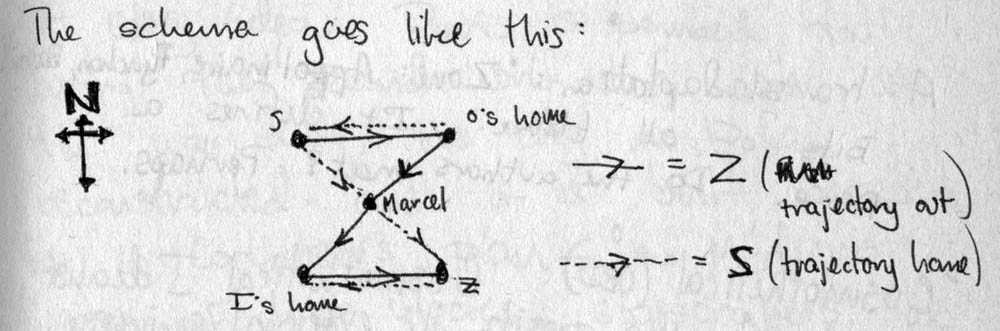 The schema goes like this:
N
S
O's home
Marcel
I's home
Z
= Z (
trajectory out)
= S (trajectory home)